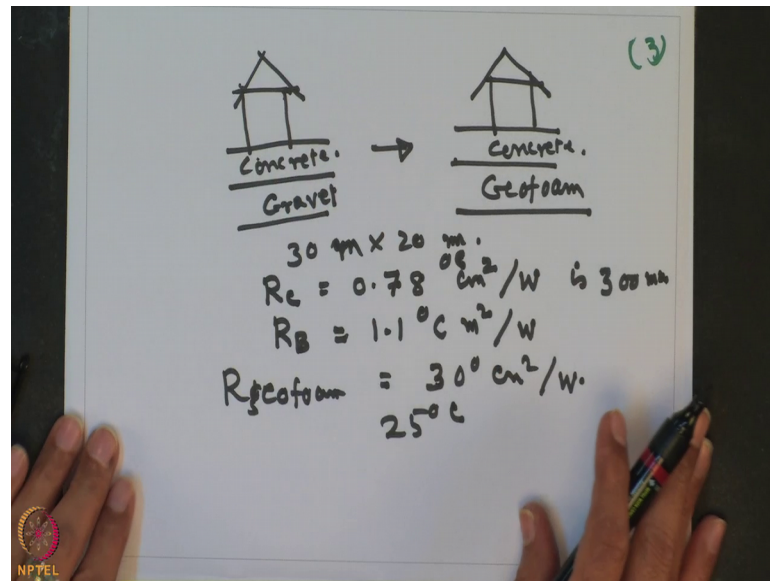 (3)
Concrete. → Concrete.
Gravel Geofoam
30 m x 20 m.
Rc = 0.78 °C m²/W is 300 mm
RB = 1.1 °C m²/W
Rgeofoam = 30° cm²/W.
25°C
NPTEL